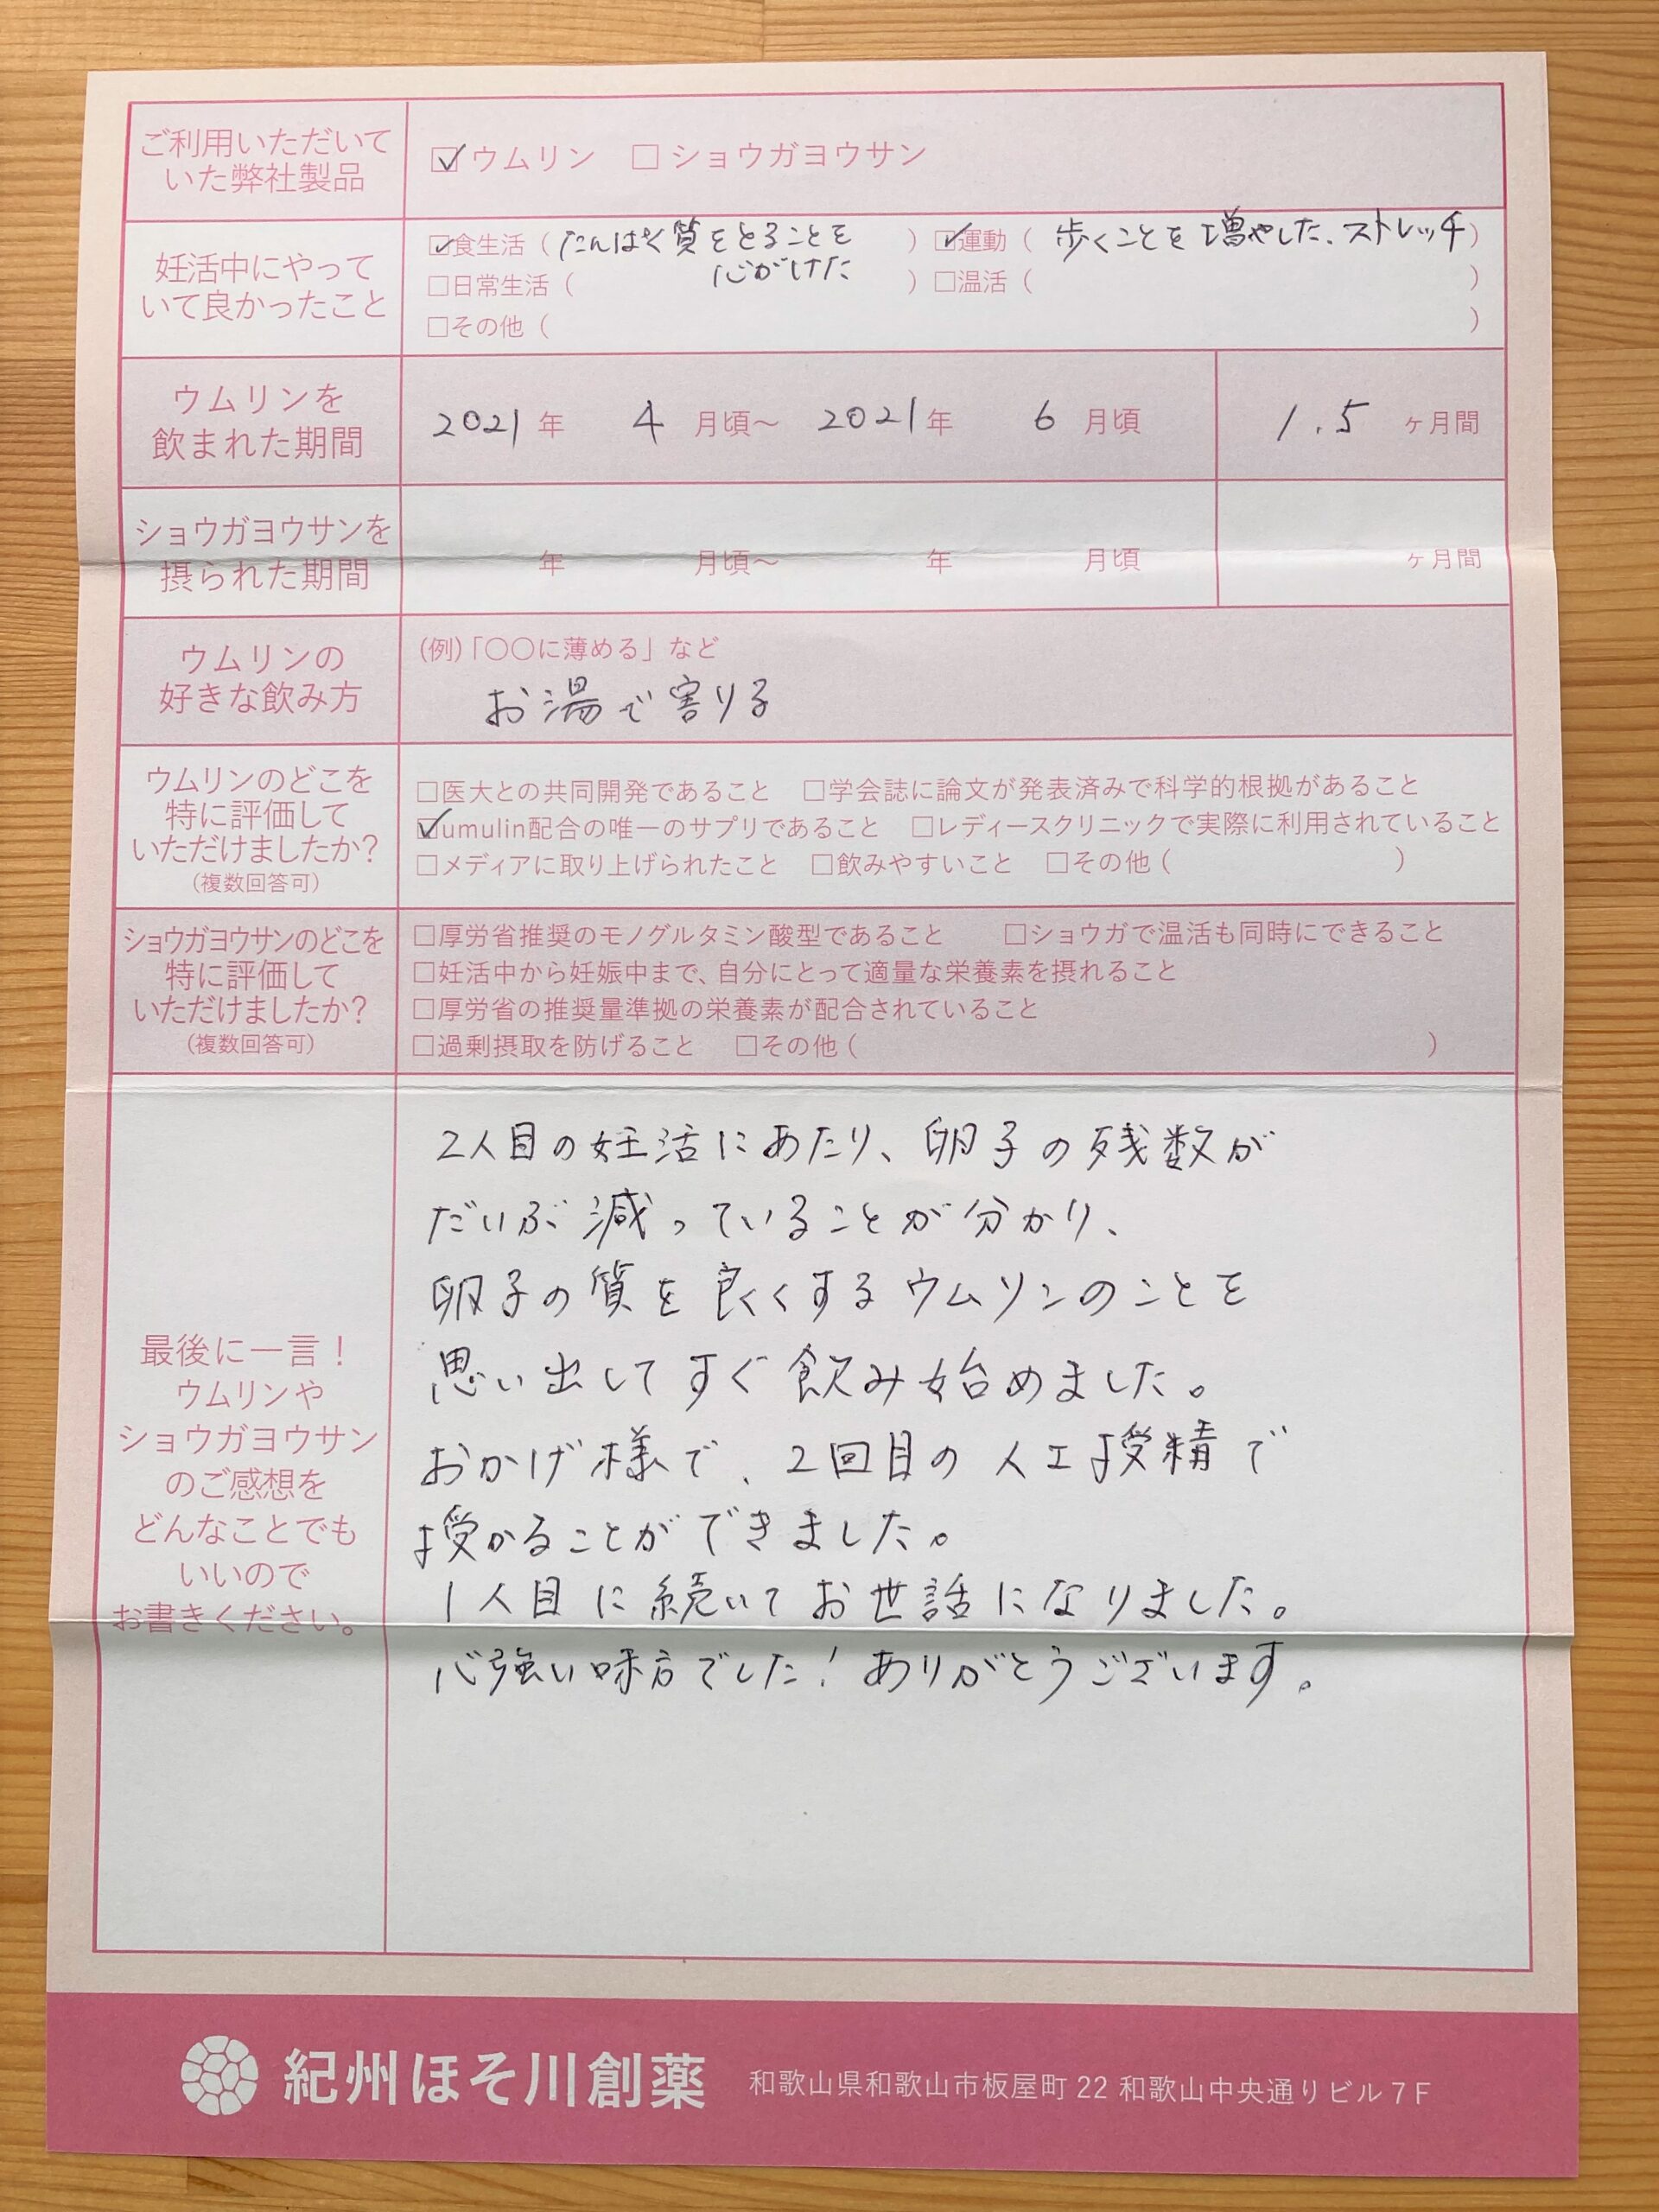 ご利用いただいて
いた弊社製品
☑ウムリン □ショウガヨウサン
妊活中にやって
いて良かったこと
☑食生活（たんぱく質をとることを
心がけた）☑運動（歩くことを増やした、ストレッチ）
□日常生活（ ）□温活（ ）
□その他（ ）
ウムリンを
飲まれた期間
2021年 4月頃〜 2021年 6月頃 1.5ヶ月間
ショウガヨウサンを
摂られた期間
年 月頃〜 年 月頃 ヶ月間
ウムリンの
好きな飲み方
(例)「〇〇に薄める」など
お湯で割りる
ウムリンのどこを
特に評価して
いただけましたか?
(複数回答可)
□医大との共同開発であること □学会誌に論文が発表済みで科学的根拠があること
☑umulin配合の唯一のサプリであること □レディースクリニックで実際に利用されていること
□メディアに取り上げられたこと □飲みやすいこと □その他（ ）
ショウガヨウサンのどこを
特に評価して
いただけましたか?
(複数回答可)
□厚労省推奨のモノグルタミン酸型であること □ショウガで温活も同時にできること
□妊活中から妊娠中まで、自分にとって適量な栄養素を摂れること
□厚労省の推奨量準拠の栄養素が配合されていること
□過剰摂取を防げること □その他（ ）
最後に一言！
ウムリンや
ショウガヨウサン
のご感想を
どんなことでも
いいので
お書きください。
2人目の妊活にあたり、卵子の残数が
だいぶ減っていることが分かり、
卵子の質を良くするウムリンのことを
思い出してすぐ飲み始めました。
おかげ様で、2回目の人工授精で
授かることができました。
1人目に続いてお世話になりました。
心強い味方でした！ありがとうございます。
紀州ほそ川創薬 和歌山県和歌山市板屋町22 和歌山中央通りビル7F